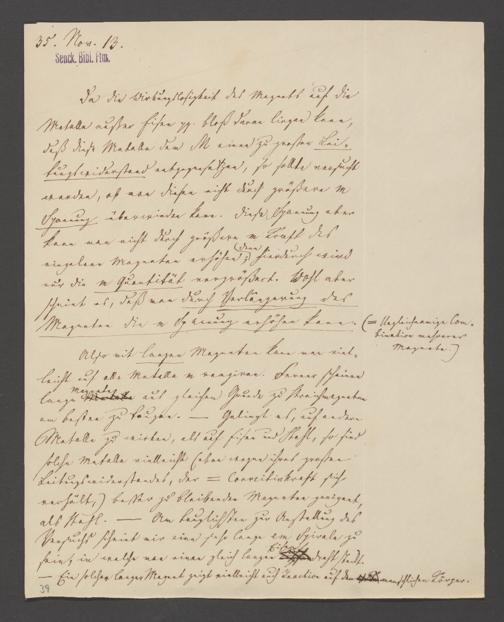 35. Nov. 13.
Senck. Bibl. Ffm.
Da die Wirkungslosigkeit des Magnets auf die
Metalle außer Eisen pp. bloß daran liegen kann,
daß diese Metalle dem M einen zu großen Lei-
tungswiderstand entgegensetzen, so sollte versucht
werden, ob man diesen nicht durch größere m
Spannung überwinden kann. Diese Spannung aber
kann man nicht durch größere m Kraft des
einzelnen Magneten erhöhen, denn hierdurch wird
nur die m Quantität vergrößert. Wohl aber
scheint es, daß man durch Verlängerung des
Magneten die m Spannung erhöhen kann. (= Ungleichnamige Com-
bination mehrerer
Magnete.)
Also mit langen Magneten kann man viel-
leicht auf alle Metalle m reagiren. Ferner scheinen
lange Magnete aus gleichem Grunde zu Streichmagneten
am besten zu taugen. — Gelingt es, auf andere
Metalle zu wirken, als auf Eisen und Stahl, so sind
solche Metalle vielleicht (eben wegen ihres großen
Leitungswiderstandes, der = Coercitivkraft sich
verhält,) besser zu bleibenden Magneten geeignet,
als Stahl. — Am tauglichsten zur Anstellung des
Versuchs scheint mir eine sehr lange em Spirale zu
sein, in welche man einen gleich langen Eisendraht steckt.
— Ein solcher langer Magnet zeigt vielleicht auch Reaction auf den menschlichen Körper.
39